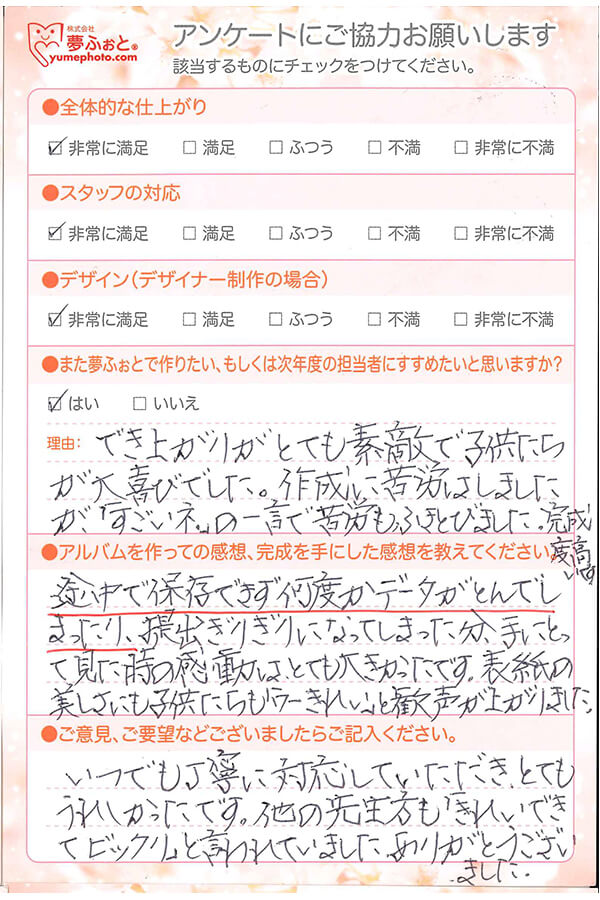 株式会社
夢ふぉと®
yumephoto.com
アンケートにご協力お願いします
該当するものにチェックをつけてください。
●全体的な仕上がり
☑ 非常に満足 □ 満足 □ ふつう □ 不満 □ 非常に不満
●スタッフの対応
☑ 非常に満足 □ 満足 □ ふつう □ 不満 □ 非常に不満
●デザイン(デザイナー制作の場合)
☑ 非常に満足 □ 満足 □ ふつう □ 不満 □ 非常に不満
●また夢ふぉとで作りたい、もしくは次年度の担当者にすすめたいと思いますか?
☑ はい □ いいえ
理由: でき上がりがとても素敵で子供たち
が大喜びでした。作成に苦労はしました
が「すごいネ。」の一言で苦労もふきとびました。完成
度高
いです
●アルバムを作っての感想、完成を手にした感想を教えてください。
途中で保存できず何度かデータがとんでし
まったり、提出ぎりぎりになってしまった分、手にとっ
て見た時の感動は、とても大きかったです。表紙の
美しさにも子供たちも「ワーきれい」と歓声が上がりました。
●ご意見、ご要望などございましたらご記入ください。
いつでも丁寧に対応していただき、とても
うれしかったです。他の先生方も「きれいでき
てビックリ」と言われていました。ありがとうござい
ました。